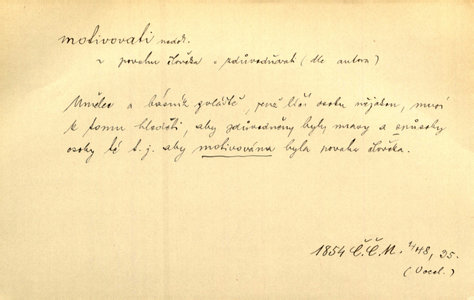 motivovati nedok.
v povahu člověka = zdůvodňovat (dle autora)
Umělec a básník zvláště, jenž líčí osobu nějakou, musí
k tomu hleděti, aby zdůvodněny byly mravy a způsoby
osoby té t. j. aby motivována byla povaha člověka.
1854 Č.Č.M. 28, 25.
(Vocel.)